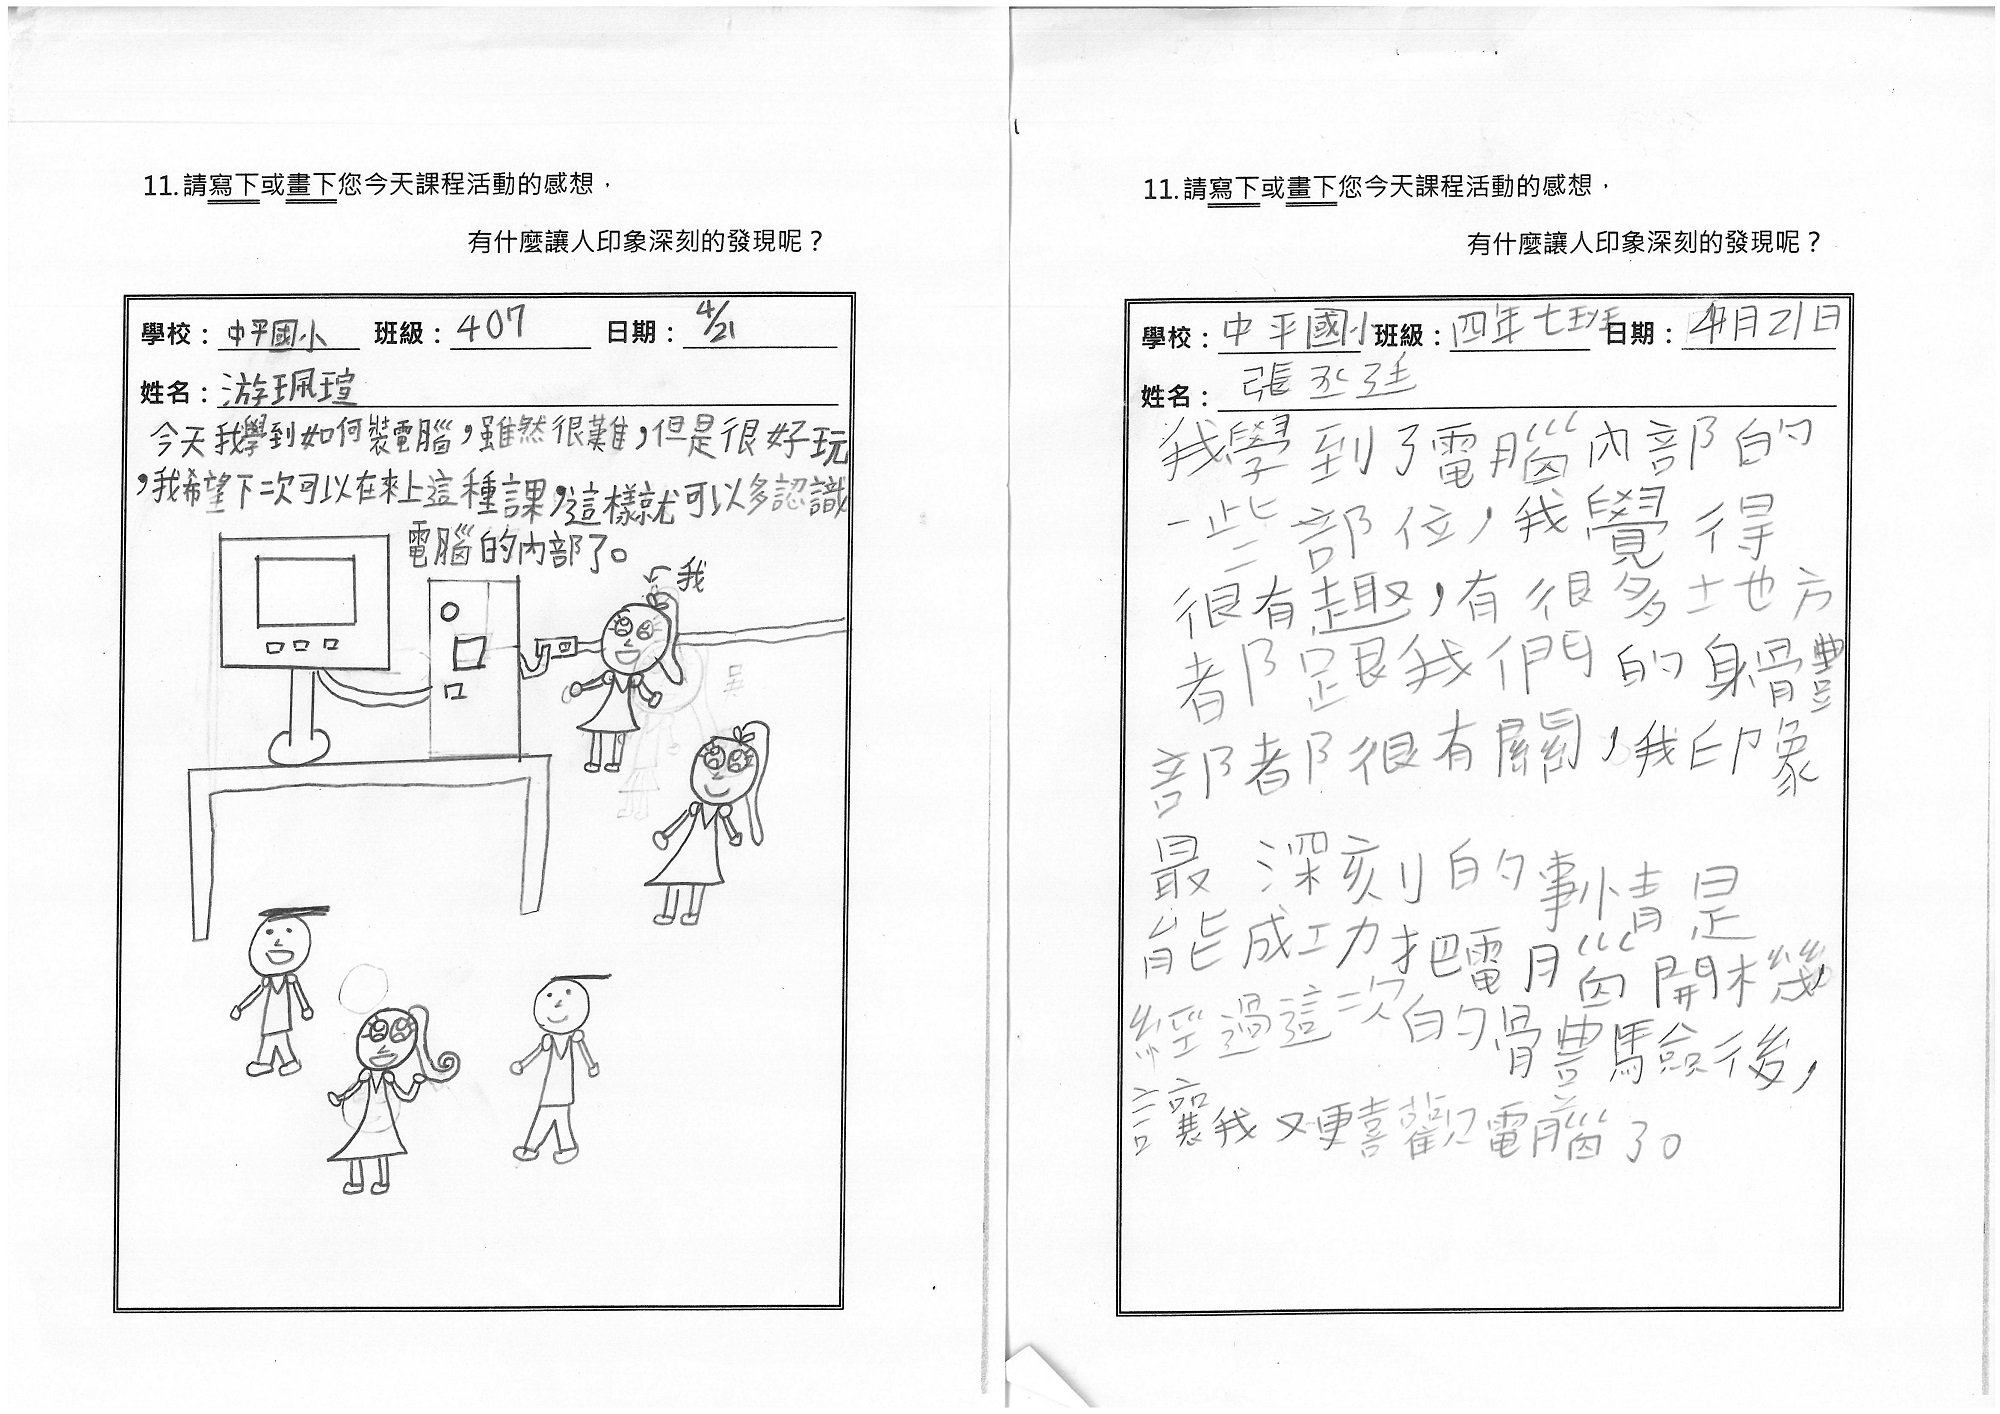 11.請寫下或畫下您今天課程活動的感想，
有什麼讓人印象深刻的發現呢？
學校：中平國小 班級：407 日期：4/21
姓名：游珮瑄
今天我學到如何裝電腦，雖然很難，但是很好玩
，我希望下次可以在來上這種課，這樣就可以多認識
電腦的內部了。
我
11.請寫下或畫下您今天課程活動的感想，
有什麼讓人印象深刻的發現呢？
學校：中平國小 班級：四年七班 日期：4月21日
姓名：張丞廷
我學到了電腦內部的
一些部位，我覺得
很有趣，有很多地方
都跟我們的身體
部都很有關，我印象
最深刻的事情是
能成功把電腦開機，
經過這次的體驗後，
讓我又更喜歡電腦了。